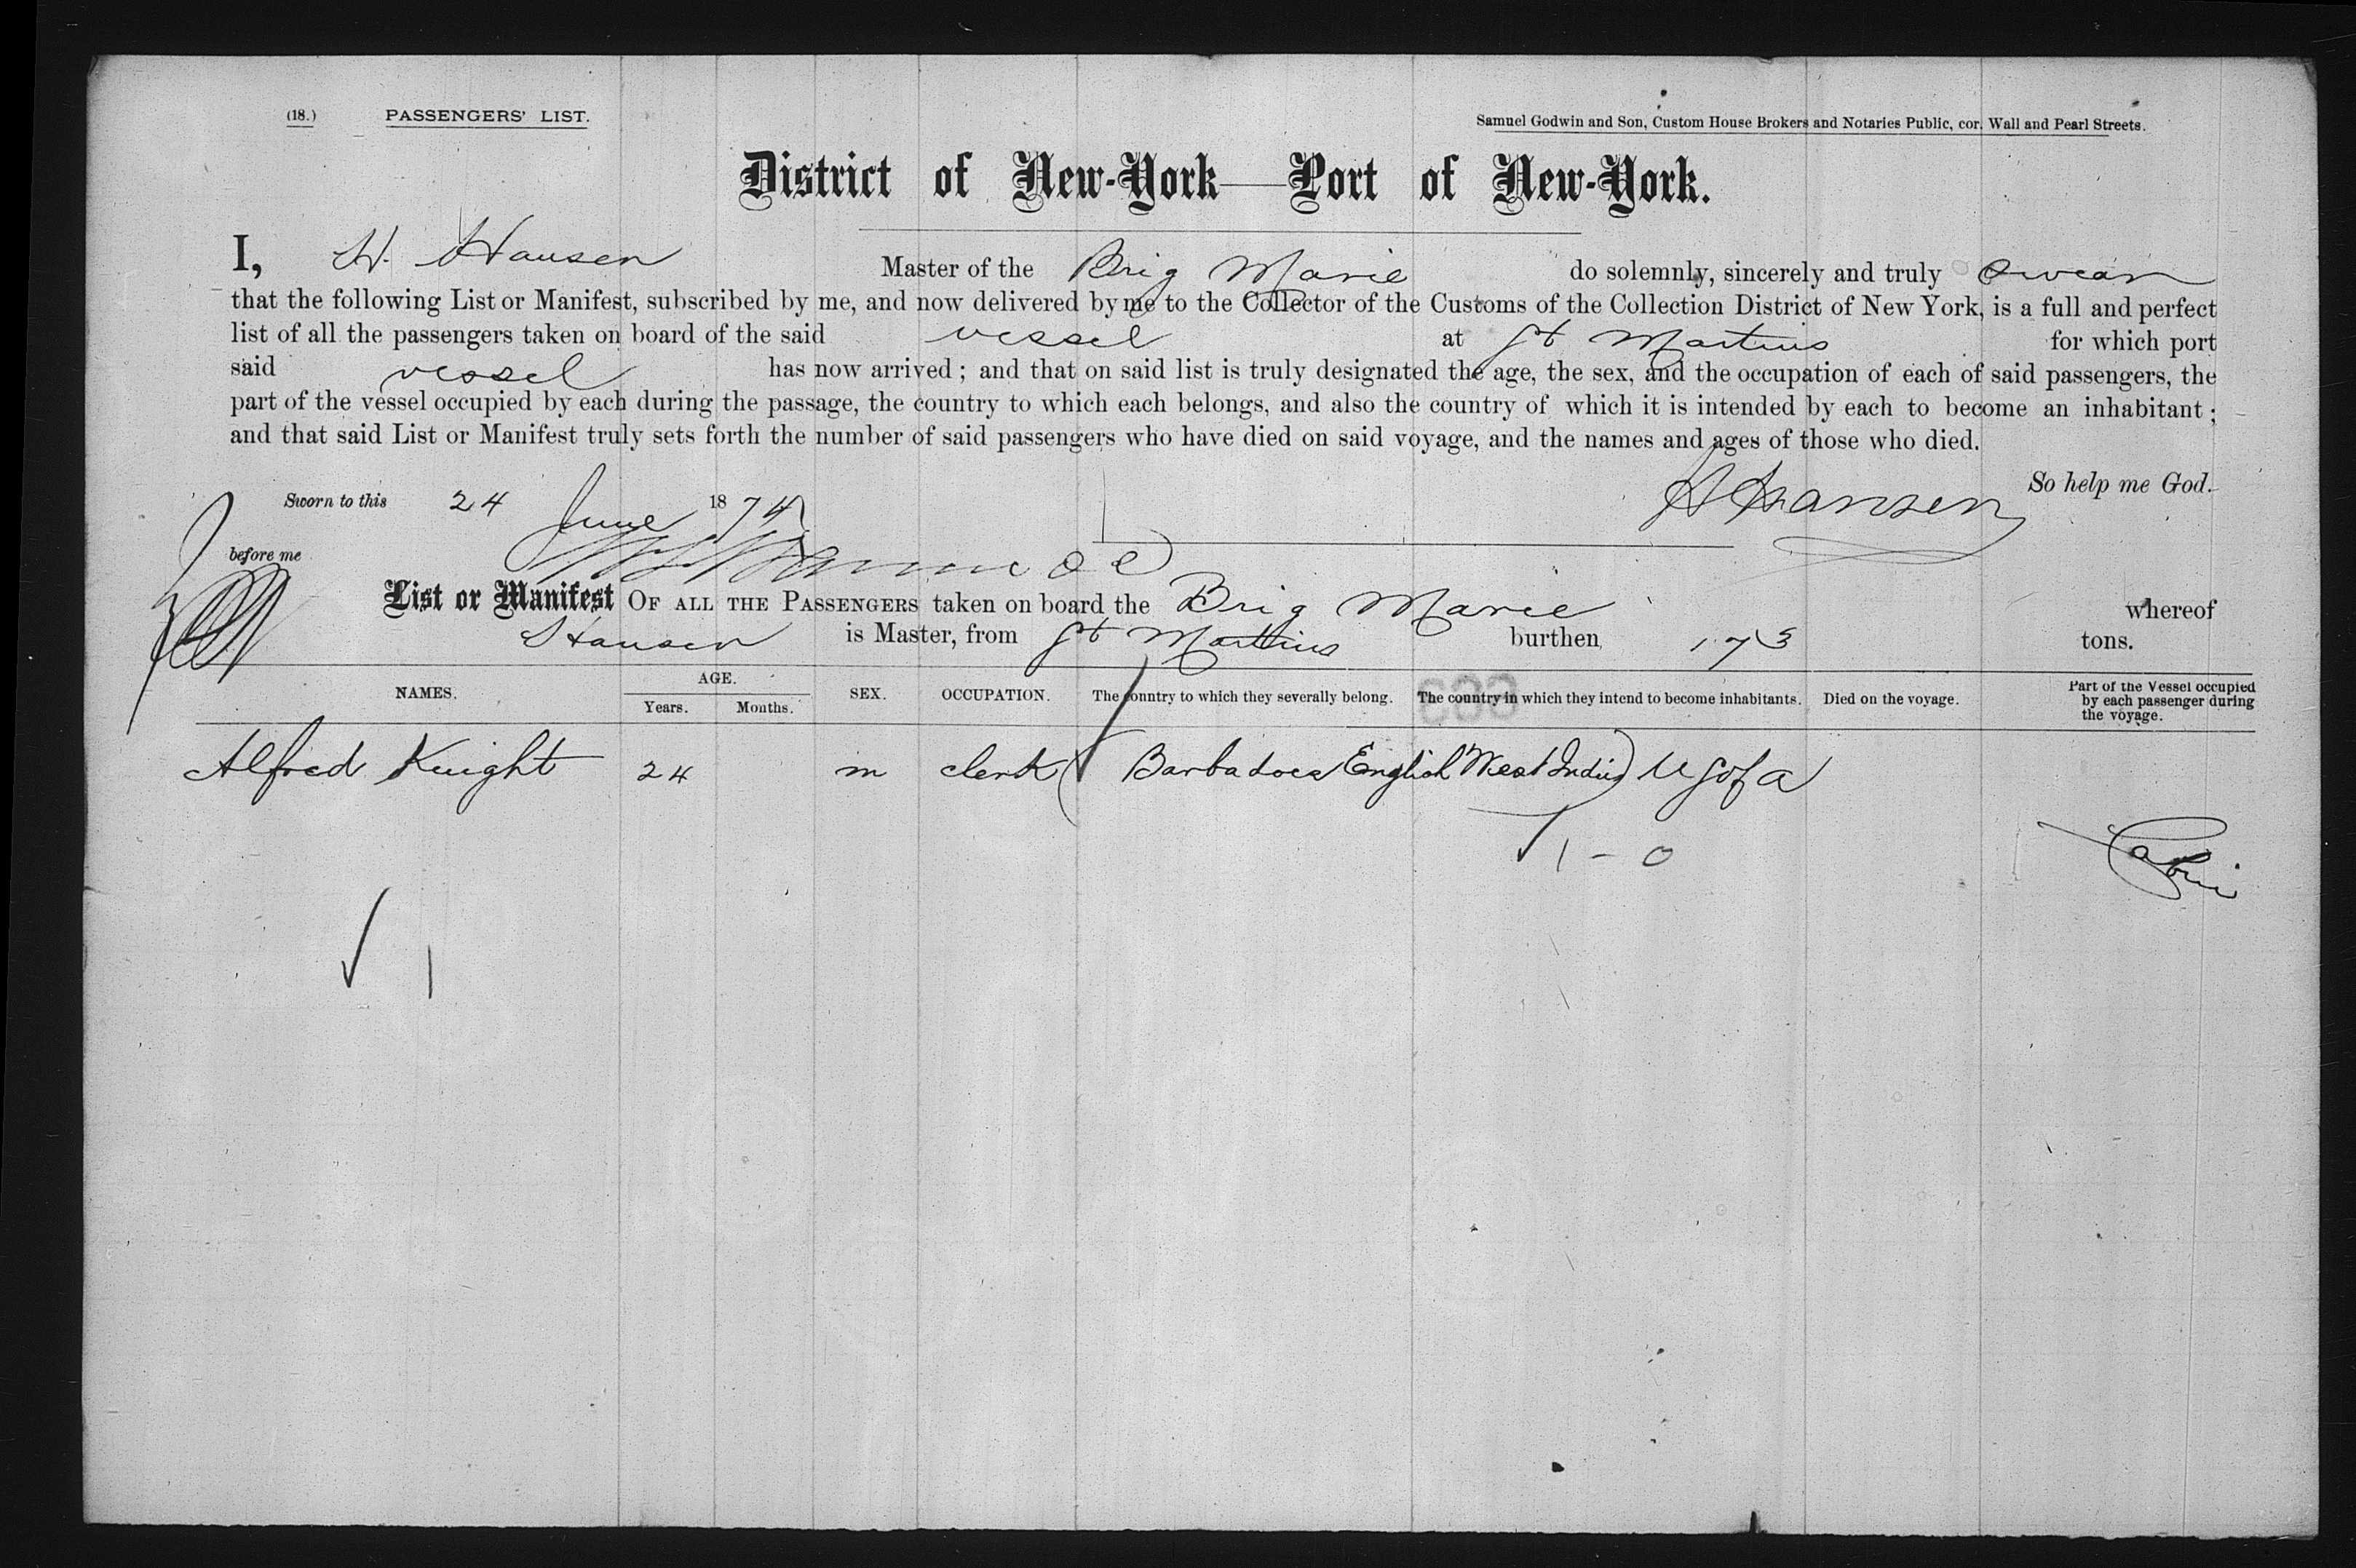 (18.) PASSENGERS' LIST. Samuel Godwin and Son, Custom House Brokers and Notaries Public, cor. Wall and Pearl Streets.
District of New-York—Port of New-York.
I, H. Hansen Master of the Brig Marie do solemnly, sincerely and truly swear
that the following List or Manifest, subscribed by me, and now delivered by me to the Collector of the Customs of the Collection District of New York, is a full and perfect
list of all the passengers taken on board of the said vessel at St Martins for which port
said vessel has now arrived; and that on said list is truly designated the age, the sex, and the occupation of each of said passengers, the
part of the vessel occupied by each during the passage, the country to which each belongs, and also the country of which it is intended by each to become an inhabitant;
and that said List or Manifest truly sets forth the number of said passengers who have died on said voyage, and the names and ages of those who died.
So help me God.
Sworn to this 24 June 1874 H Hansen
before me
List or Manifest OF ALL THE PASSENGERS taken on board the Brig Marie whereof
Hansen is Master, from St Martins burthen 173 tons.
NAMES. AGE. Years. Months. SEX. OCCUPATION. The conntry to which they severally belong. The country in which they intend to become inhabitants. Died on the voyage. Part of the Vessel occupied by each passenger during the voyage.
Alfred Knight 24 m clerk (Barbadoes English West Indies) U S of A
✓ 1 - 0
Cabin
✓ 1